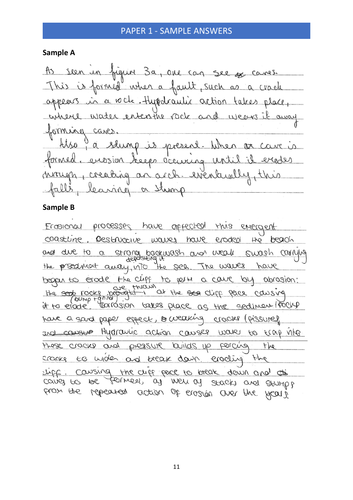 PAPER 1 - SAMPLE ANSWERS
Sample A
As seen in figure 3a, one can see caves.
This is formed when a fault, such as a crack
appears in a rock. Hydraulic action takes place,
where water enters the rock and wears it away
forming caves.
Also, a stump is present. When a cave is
formed, erosion keeps occuring until it erodes
through, creating an arch. eventually, this
falls, leaving a stump
Sample B
Erosional processes have affected this emergent
coastline. Destructive waves have eroded the beach
and due to a strong backwash and weak swash carrying
depositing it
the sediment away, into the sea. The waves have
began to erode the cliff to form a cave by abrasion:
are thrown
the rocks brought at the cliff face causing
it to erode. Corrosion takes place as the sediment/rocks
have a sand paper effect, creating cracks (fissures)
Hydraulic action causes waves to trap into
these cracks and pressure builds up forcing the
cracks to widen and break down eroding the
cliff. Causing the cliff face to break down and
caves to be formed, as well as stacks and stumps
from the repeated action of erosion over the years
11